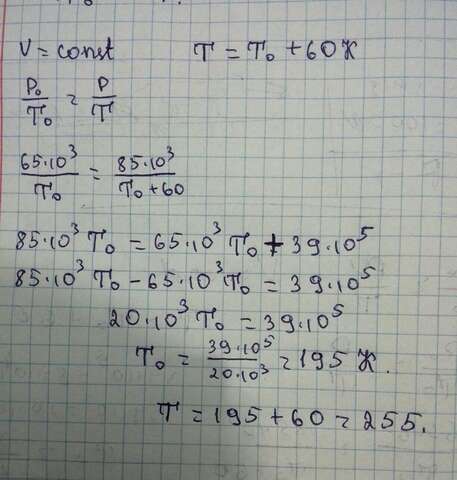 V = const T = T₀ + 60K
P₀/T₀ = P/T
65·10³/T₀ = 85·10³/(T₀+60)
85·10³ T₀ = 65·10³ T₀ + 39·10⁵
85·10³ T₀ - 65·10³ T₀ = 39·10⁵
20·10³ T₀ = 39·10⁵
T₀ = 39·10⁵/20·10³ = 195 K.
T = 195 + 60 = 255.